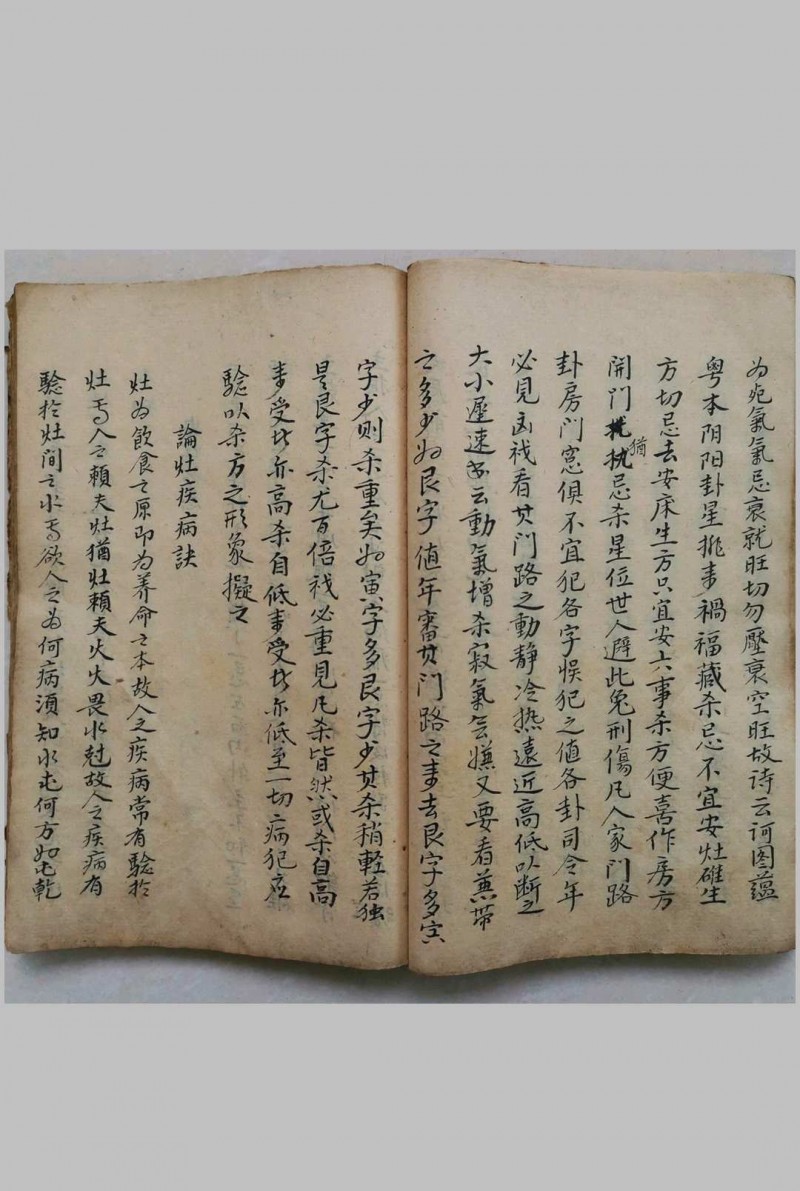 为宛氣氣忌衰就旺切勿壓衰空旺故诗云诃图蕴
粤本阴阳卦星排来禍福藏杀忌不宜安灶碓生
方切忌去安床生方只宜安六事杀方便喜作房方
開門猶忌杀星位世人避此免刑傷凡人家門路
卦房門窓俱不宜犯各字悮犯之值各卦司令年
必見凶祸看其門路之動静冷热遠近高低以断之
大小遲速書云動氣增杀寂氣云嫌又要看兼带
之多少如艮字值年審其門路之来去艮字多寅
字少则杀重矣如寅字多艮字少其杀稍軽若独
是艮字杀尤百倍祸必重見凡杀皆然或杀自高
来受此亦高杀自低来受此亦低至一切病犯应
驗以杀方之形象擬之
論灶疾病訣
灶为飲食之原即为养命之本故人之疾病常有驗於
灶焉人之賴夫灶猶灶賴夫火火畏水尅故人之疾病有
驗於灶間之水焉欲人之为何病須知水屯何方如屯乾